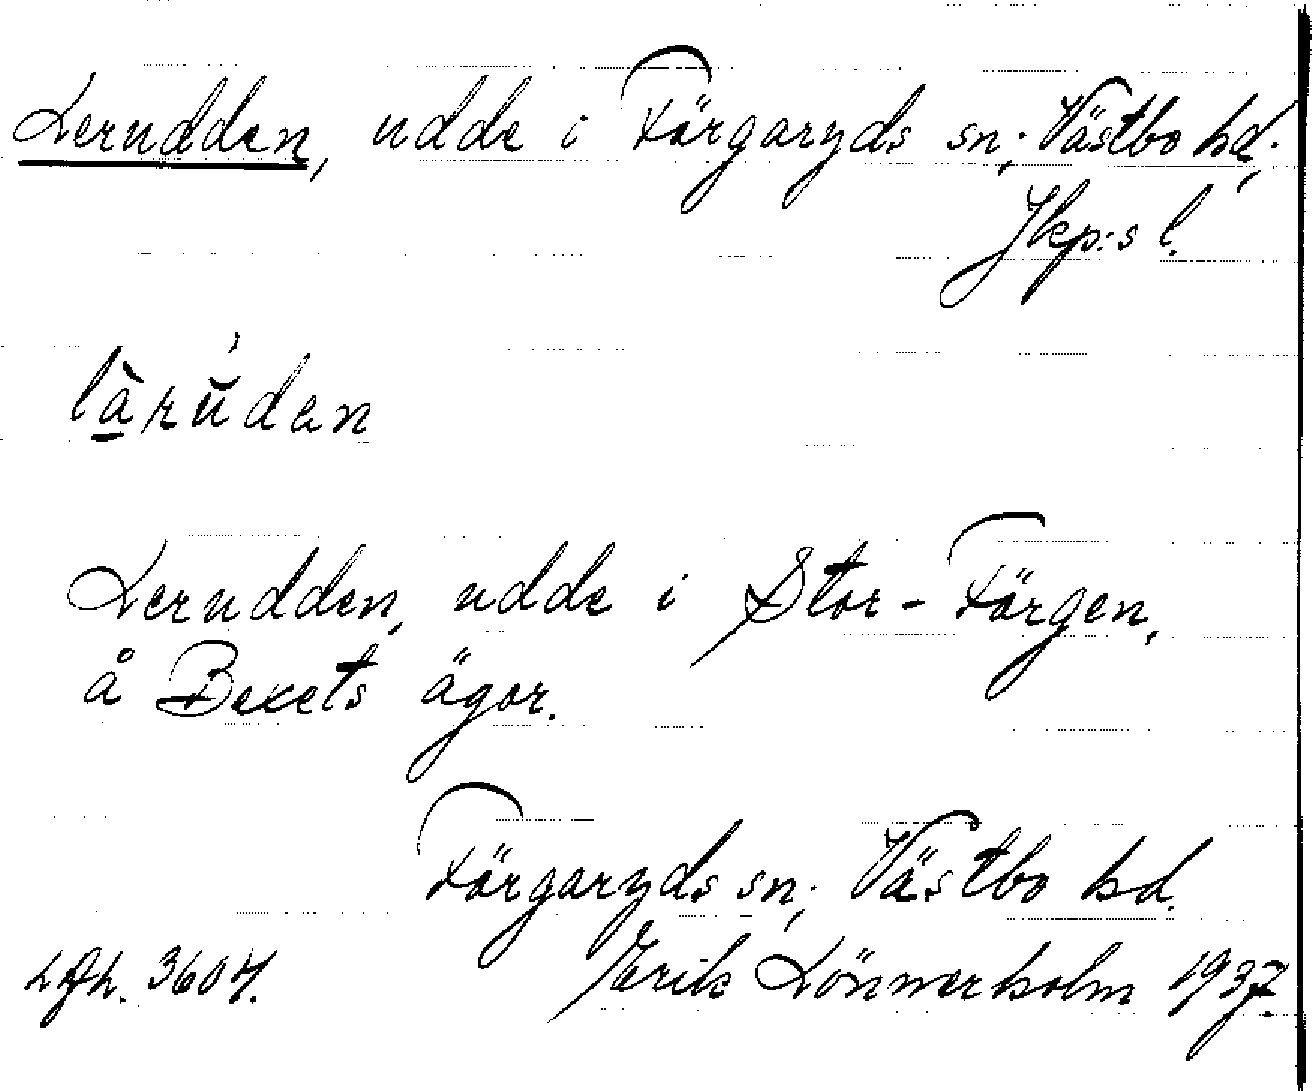 Lerudden, udde i Färgaryds sn., Västbo hd.,
Jkp:s l.
làrŭ́den
Lerudden, udde i Stor-Färgen,
å Bexets ägor.
Färgaryds sn., Västbo hd.
Erik Lönnerholm 1937.